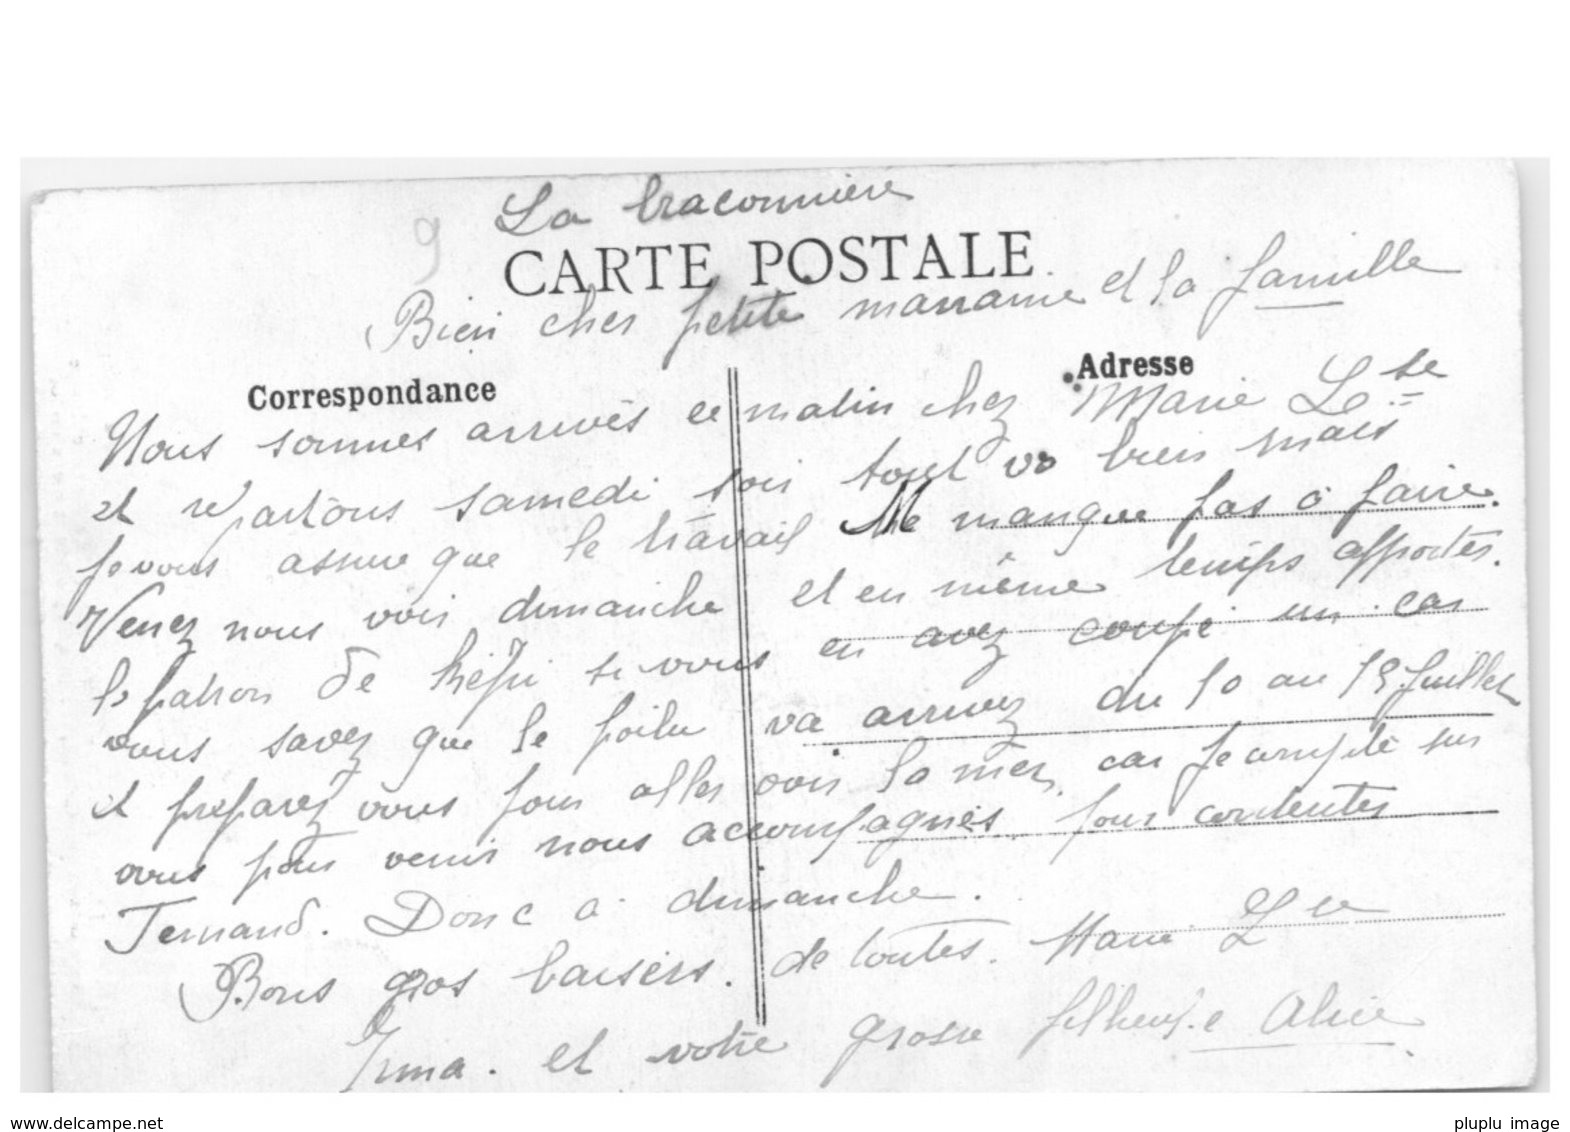 La braconnière
9
CARTE POSTALE
Bien cher petite marraine et la famille
Correspondance
Adresse
Nous sommes arrivés ce matin chez Marie Lse
et repartons samedi soir tout va bien mais
je vous assure que le travail Ne manque pas à faire.
Venez nous voir dimanche et en même temps apportez.
le patron de képi si vous en avez coupé un. car
vous savez que le poilu va arrivez du 10 au 15 Juillet
et préparez vous pour aller voir la mer. car je compte sur
vous pour venir nous accompagnés. pour contenter
Fernand. Donc a dimanche.
Bons gros baisers. de toutes. Marie Lse
Irma. et votre grosse Alice
www.delcampe.net
pluplu image